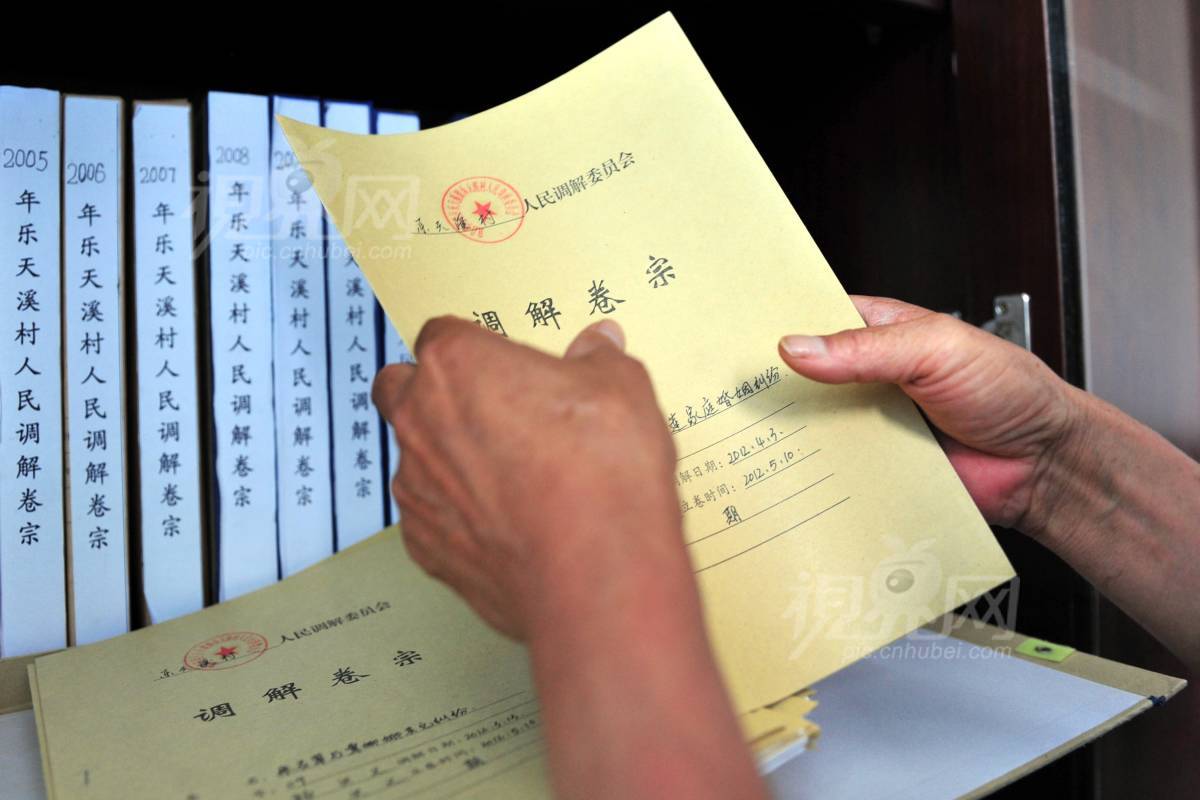 2005 年乐天溪村人民调解卷宗
2006 年乐天溪村人民调解卷宗
2007 年乐天溪村人民调解卷宗
2008 年乐天溪村人民调解卷宗
年乐天溪村人民调解卷宗
天溪村人民调解卷宗
乐天溪村 人民调解委员会
调解卷宗
家庭婚姻纠纷
解日期：2012.4.3.
立卷时间：2012.5.10.
期
乐天溪村 人民调解委员会
调解卷宗
纠纷
调解日期：
立卷时间：
期
视界网
pic.cnhubei.com
视界网
pic.cnhubei.com